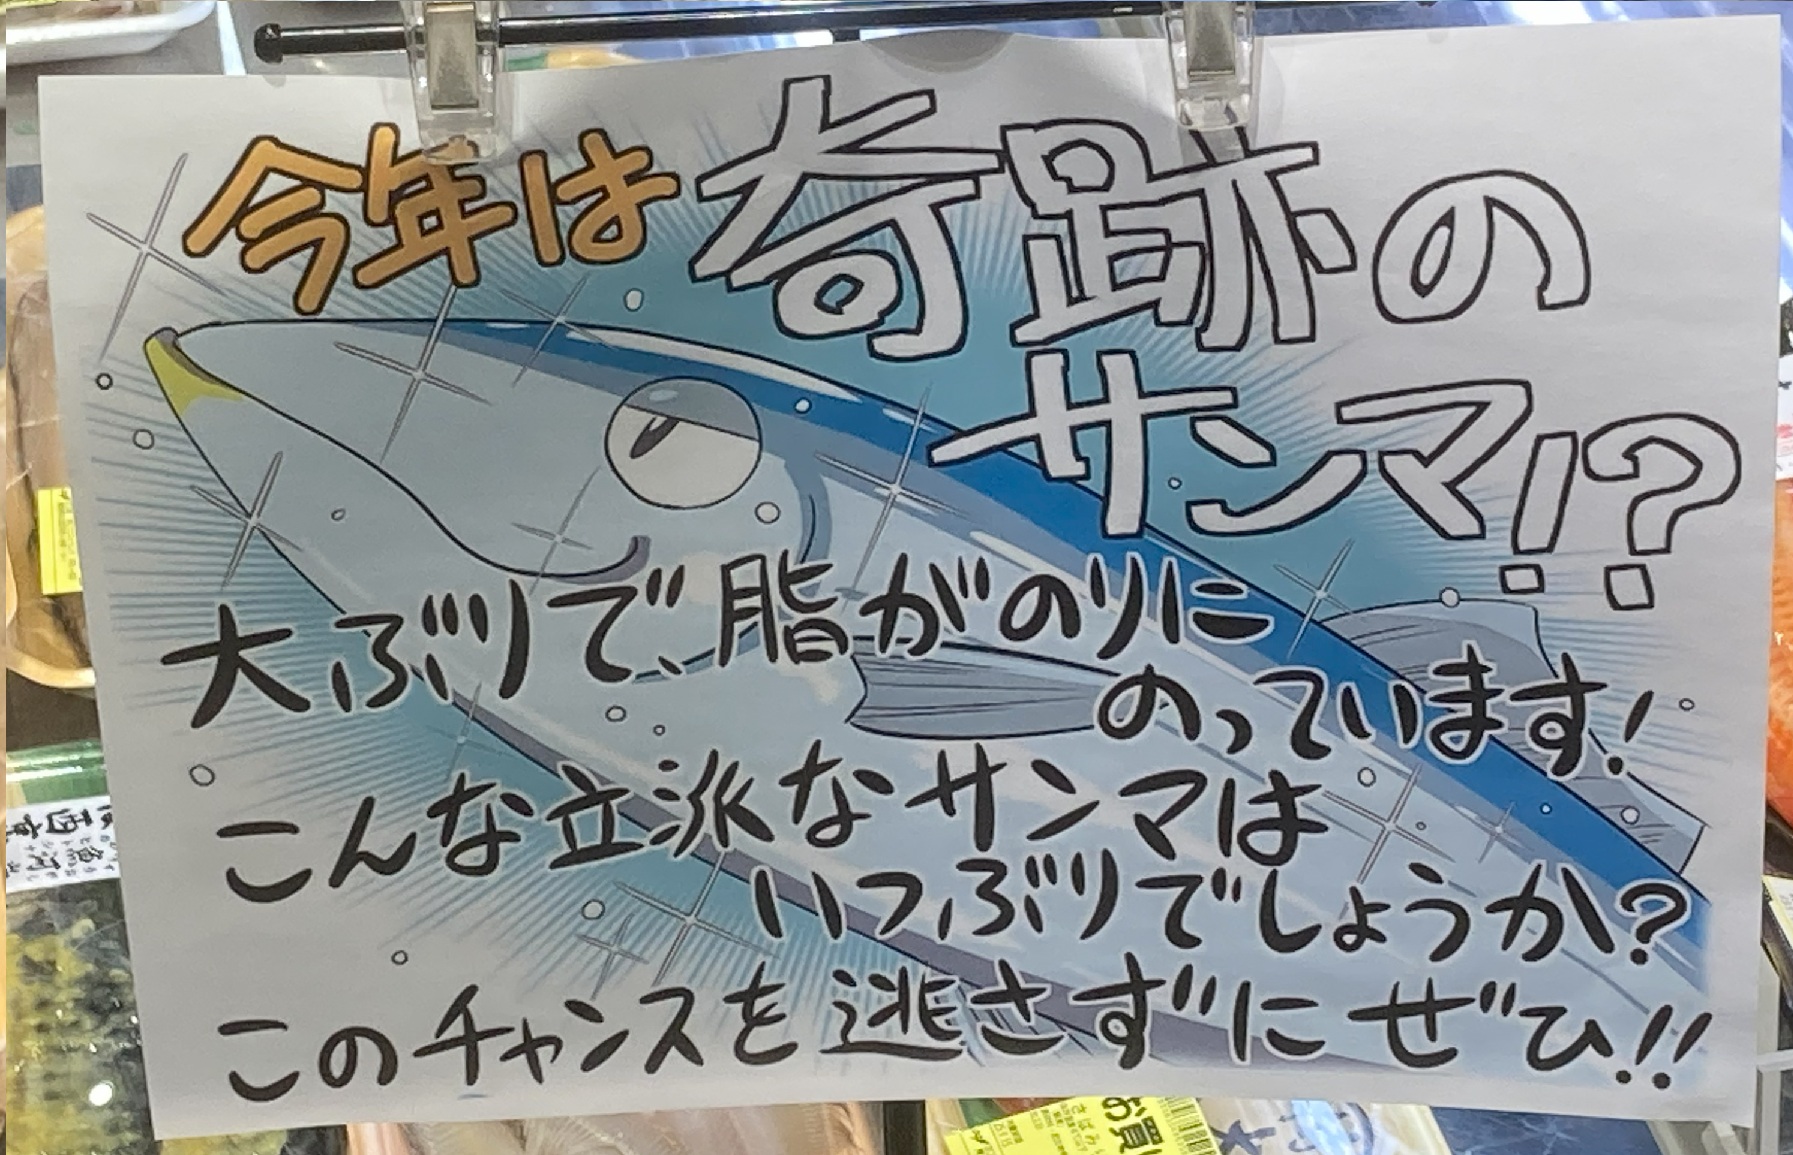 今年は奇跡の
サンマ!?
大ぶりで、脂がのりに
のっています!
こんな立派なサンマは
いつぶりでしょうか?
このチャンスを逃さずにぜひ!!